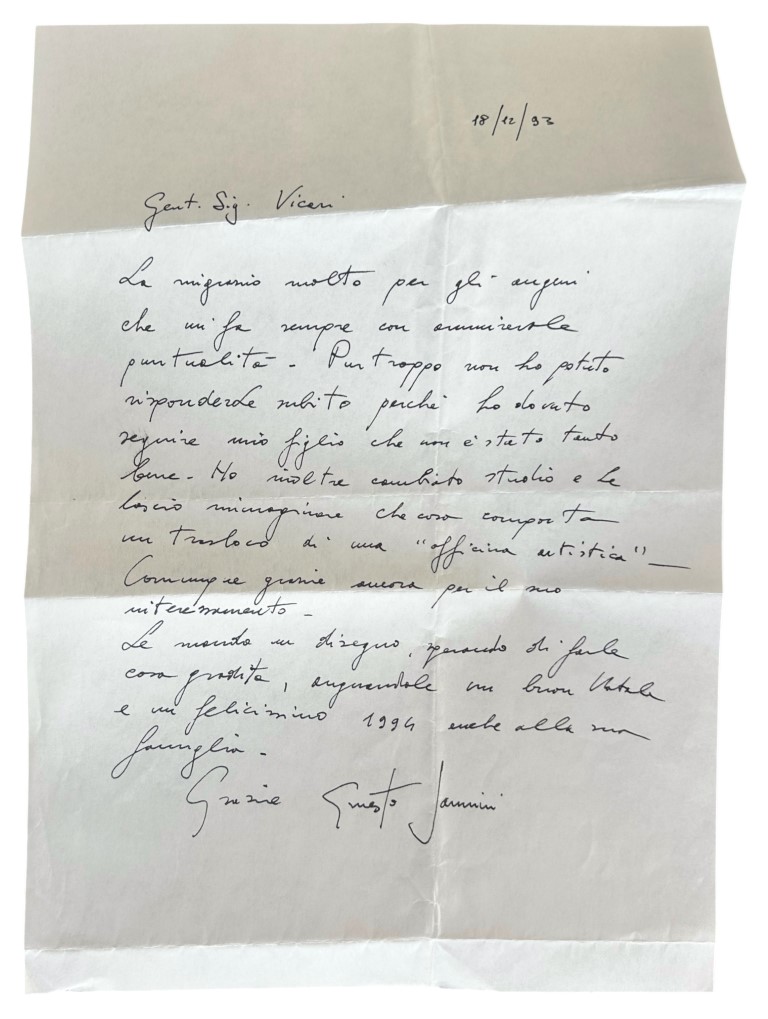 18/12/93
Gent. Sig. Viceri
La ringrazio molto per gli auguri
che mi fa sempre con ammirevole
puntualità - Purtroppo non ho potuto
risponderLe subito perché ho dovuto
seguire mio figlio che non è stato tanto
bene - Ho inoltre cambiato studio e Le
lascio immaginare che cosa comporta
un trasloco di una "officina artistica" —
Comunque grazie ancora per il suo
interessamento -
Le mando un disegno, sperando di farLe
cosa gradita, augurandole un buon Natale
e un felicissimo 1994 anche alla sua
famiglia -
Grazie Ernesto Jannini